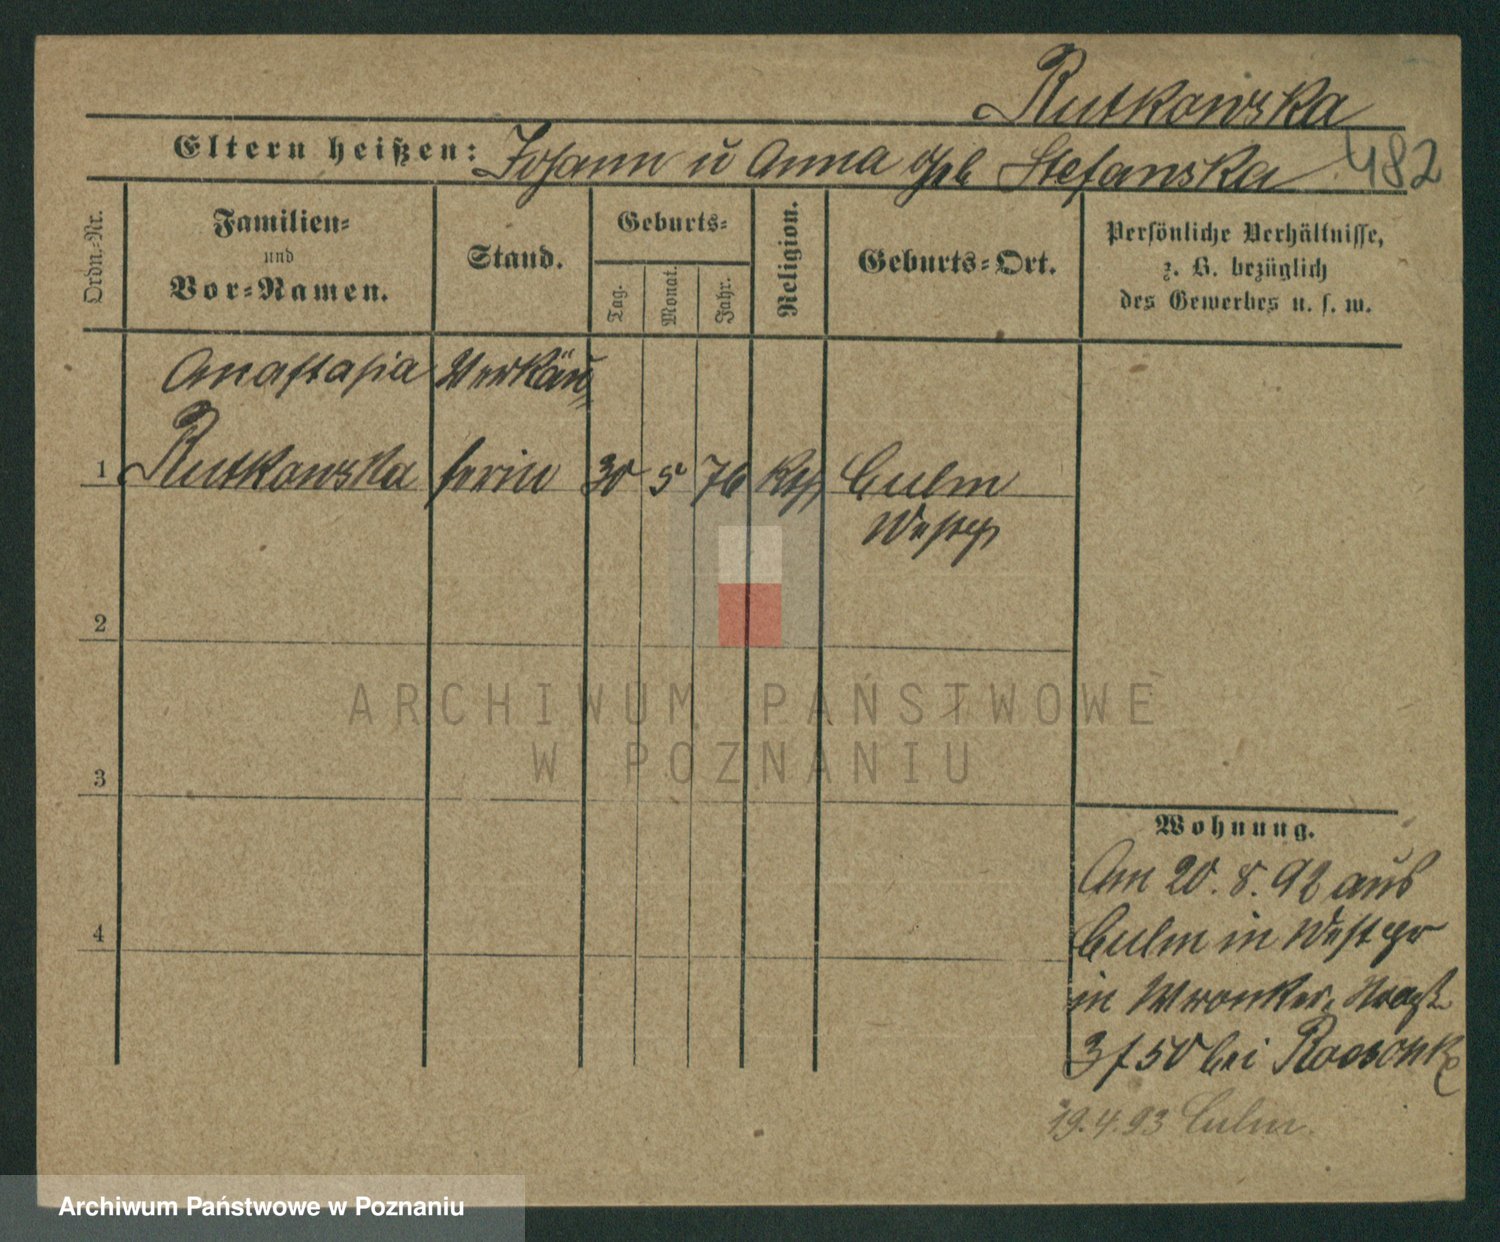 Rutkowska
Eltern heißen: Johann u Anna geb Stefanska 482
Ordn.-Nr.
Familien-
und
Vor-Namen.
Stand.
Geburts-
Tag.
Monat.
Jahr.
Religion.
Geburts-Ort.
Persönliche Verhältnisse,
z. B. bezüglich
des Gewerbes u. s. w.
Anastasia Verkäu=
1 Rutkowska ferin 30 5 76 kth Culm
Westp
2
3
4
Wohnung.
Am 20. 8. 92 aus
Culm in Westpr
in Wronker
3/50 bei
19.4.93 Culm.
ARCHIWUM PAŃSTWOWE
W POZNANIU
Archiwum Państwowe w Poznaniu